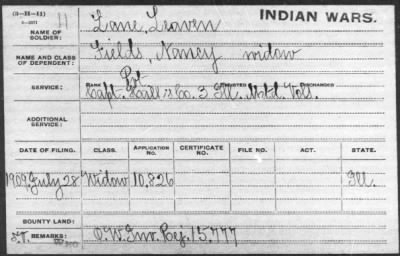 (3-33-11)
3-2071
11
INDIAN WARS.
NAME OF SOLDIER: Lane, Leaven
NAME AND CLASS OF DEPENDENT: Fields, Nancy widow
SERVICE: RANK ENLISTED DISCHARGED
Pvt
Capt. Co. 3 Ill. Mtd. Vols.
ADDITIONAL SERVICE:
DATE OF FILING. CLASS. APPLICATION No. CERTIFICATE No. FILE NO. ACT. STATE.
1909, July 28 Widow 10,826 Ill.
BOUNTY LAND:
REMARKS: O.W. Inv. Rej. 15,777